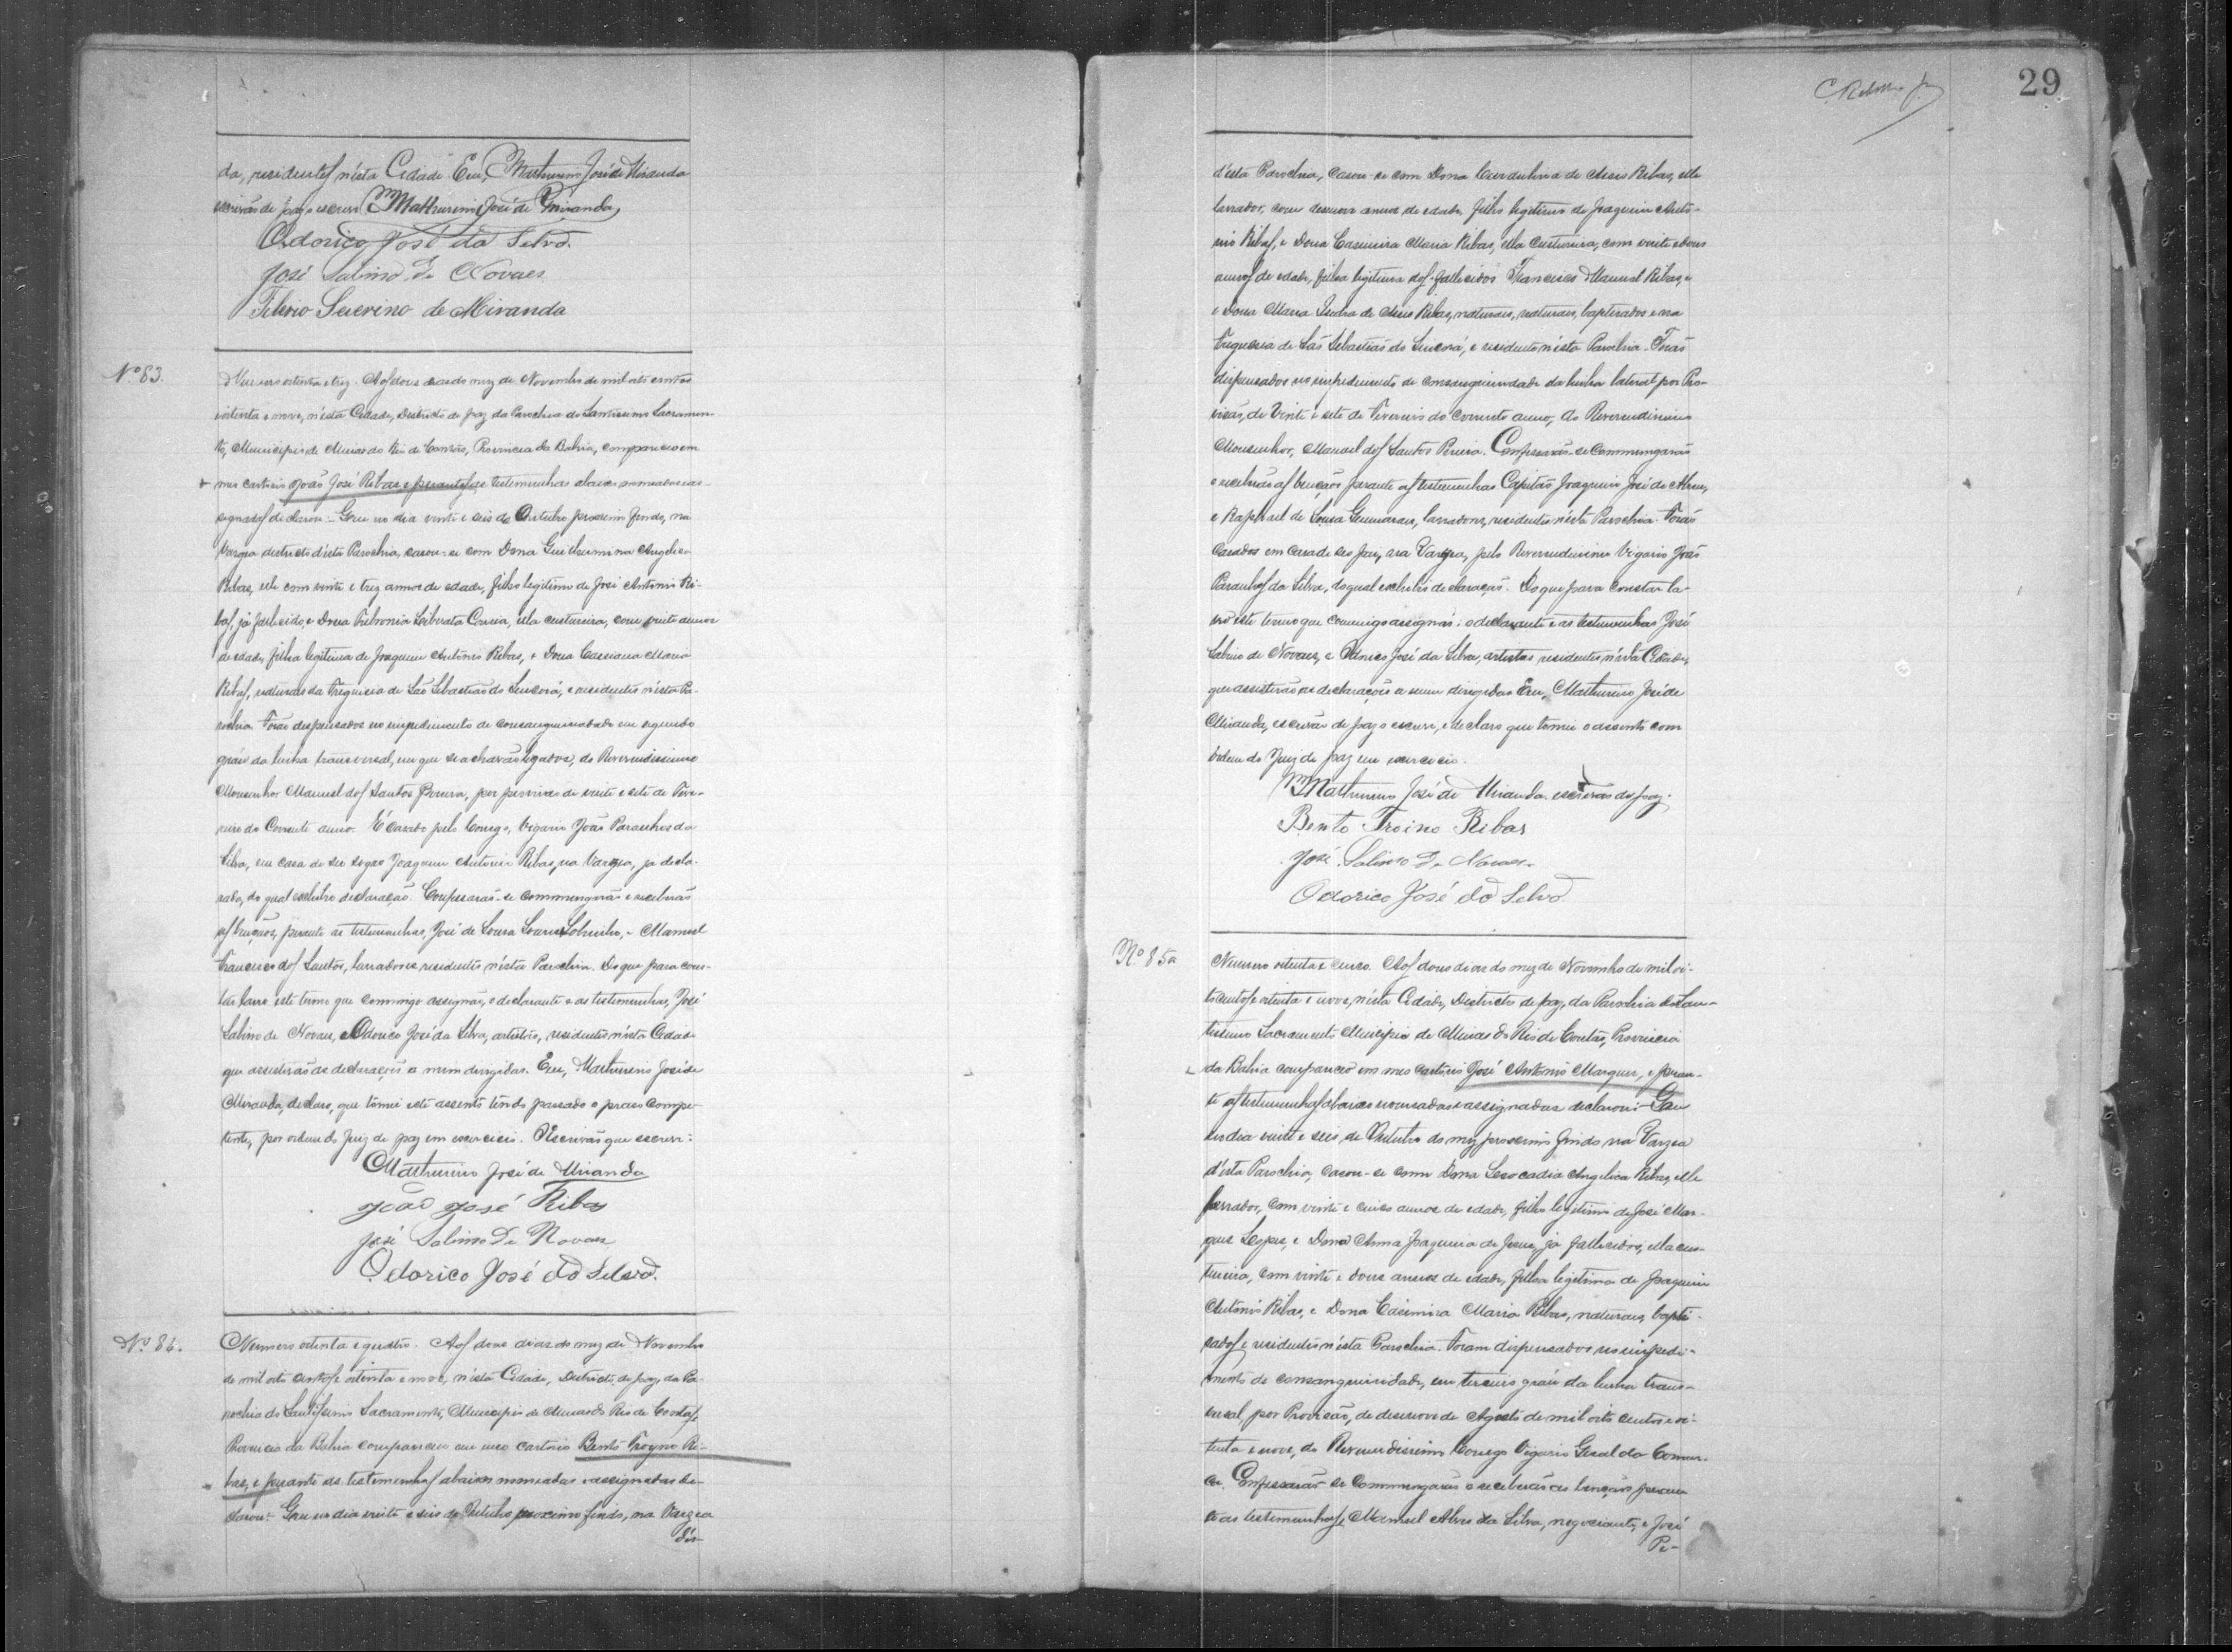 da, residentes n'esta Cidade. Eu, Mathurino José de Miranda
escrivão de paz o escrevi Mathurino José de Miranda
Odorico José da Silva.
José Sabino de Novaes
Tiberio Severino de Miranda
Nº 83.
Numero oitenta e trez. Aos dous dias do mez de Novembro de mil oito centos
oitenta e nove, n'esta Cidade, Districto de paz da Parochia do Santissimo Sacramen-
to, Municipio de Minas do Rio de Contas, Provincia da Bahia, compareceo em
meo cartorio João José Ribas, e perante as testemunhas abaixo nomeadas e as-
signadas declarou: Que no dia vinte e seis de Outubro proximo findo, na
Varzea districto d'esta Parochia, casou-se com Dona Guilhermina Angelica
Ribas, elle com vinte e trez annos de edade, filho legitimo de José Antonio Ri-
bas, já fallecido, e Dona Febronia Liberata Correia, ella costureira, com vinte annos
de edade, filha legitima de Joaquim Antonio Ribas, e Dona Cassiana Maria
Ribas, naturaes da Freguesia de São Sebastião do Sincorá, e residentes n'esta Pa-
rochia. Forão despensados no impedimento de consanguinidade em segundo
gráu da linha transversal, em que se achavão ligados, do Reverendissimo
Monsenhor Manuel dos Santos Pereira, por provisão de vinte e sete de Feve-
reiro do Corrente anno. É casado pelo Conego, Vigario João Paranhos da
Silva, em casa de seu sogro Joaquim Antonio Ribas, na Varzea, já decla-
rada, do qual exhibio declaração. Confessarão-se commungarão e receberão
as bençãos, perante as testemunhas, José de Sousa Soares Sobrinho, e Manuel
Francisco dos Santos, lavradores residentes n'esta Parochia. Do que para cons-
tar lavro este termo que commigo assignão, o declarante e as testemunhas, José
Sabino de Novaes, e Odorico José da Silva, artistas, residentes n'esta Cidade
que assistirão as declarações a mim dirigidas. Eu, Mathurino José de
Miranda, declaro, que tomei este assento tendo passado o praso compe-
tente, por ordem do Juiz de paz em exercicio. Escrivão que escrevi:
Mathurino José de Miranda
João José Ribas
José Sabino de Novaes
Odorico José da Silva.
Nº 84.
Numero oitenta e quatro. Aos dous dias do mez de Novembro
de mil oito centos e oitenta e nove, n'esta Cidade, Districto de paz da Pa-
rochia do Santissimo Sacramento, Municipio de Minas do Rio de Contas,
Provincia da Bahia compareceu em meo cartorio Bento Troyno Ri-
bas, e perante as testemunhas abaixo nomeadas e assignadas de-
clarou: Que no dia vinte e seis de Outubro proximo findo, na Varzea
d'es-
29
d'esta Parochia, casou-se com Dona de Assis Ribas, elle
lavrador, com desenove annos de edade, filho legitimo de Joaquim Anto-
nio Ribas, e Dona Casimira Maria Ribas, ella costureira, com vinte e dous
annos de edade, filha legitima dos fallecidos Francisco Manuel Ribas, e
e Dona Maria de Assis Ribas, naturaes, naturaes, baptisados e na
Freguesia de São Sebastião do Sincorá, e residentes n'esta Parochia. Forão
dispensados no impedimento de consanguinidade da linha lateral por Pro-
visão, de Vinte e sete de Fevereiro do corrente anno, do Reverendissimo
Monsenhor, Manuel dos Santos Pereira. Confessarão-se Commungarão
e receberão as bençãos perante as testemunhas Capitão Joaquim José de Abreu,
e Raphael de Sousa Guimarães, lavradores, residentes n'esta Parochia. Forão
Casados em casa de seo pae, na Varzea, pelo Reverendissimo Vigario João
Paranhos da Silva, do qual exhibio declaração. Do que para constar la-
vro este termo que commigo assignão: o declarante e as testemunhas José
Sabino de Novaes, e Odorico José da Silva, artistas residentes n'esta Cidade,
que assistirão as declarações a mim dirigidas. Eu, Mathurino José de
Miranda, escrivão de paz o escrevi, e declaro que tomei o assento com
ordem do Juiz de paz em exercicio.
Mathurino José de Miranda escrivão de paz.
Bento Troino Ribas
José Sabino de Novaes
Odorico José da Silva
Nº 85
Numero oitenta e cinco. Aos dous dias do mez de Novembro de mil oi-
to centos e oitenta e nove, n'esta Cidade, Districto de paz, da Parochia do San-
tissimo Sacramento Municipio de Minas do Rio de Contas, Provincia
da Bahia compareceo em meo cartorio José Antonio Marques, e peran-
te as testemunhas abaixo nomeadas e assignadas declarou: Que
no dia vinte e seis, de Outubro do mez proximo findo na Varzea
d'esta Parochia, casou-se com Dona Leocadia Angelica Ribas, elle
lavrador, com vinte e cinco annos de edade, filho legitimo de José Mar-
ques Lopes, e Dona Anna Joaquina de Jesus, já fallecidos, ella cos-
tureira, com vinte e dous annos de edade, filha legitima de Joaquim
Antonio Ribas, e Dona Casimira Maria Ribas, naturaes, bapti-
sados e residentes n'esta Parochia. Foram dispensados no impedi-
mento de consanguinidade, em terceiro gráu da linha trans-
versal, por Provisão, de desenove de Agosto de mil oito centos e oi-
tenta e nove, do Reverendissimo Conego Vigario Geral da Comar-
ca. Confessarão-se Commungarão e receberão as bençãos peran-
te as testemunhas, Manuel Alves da Silva, negociante, e José
Pe-